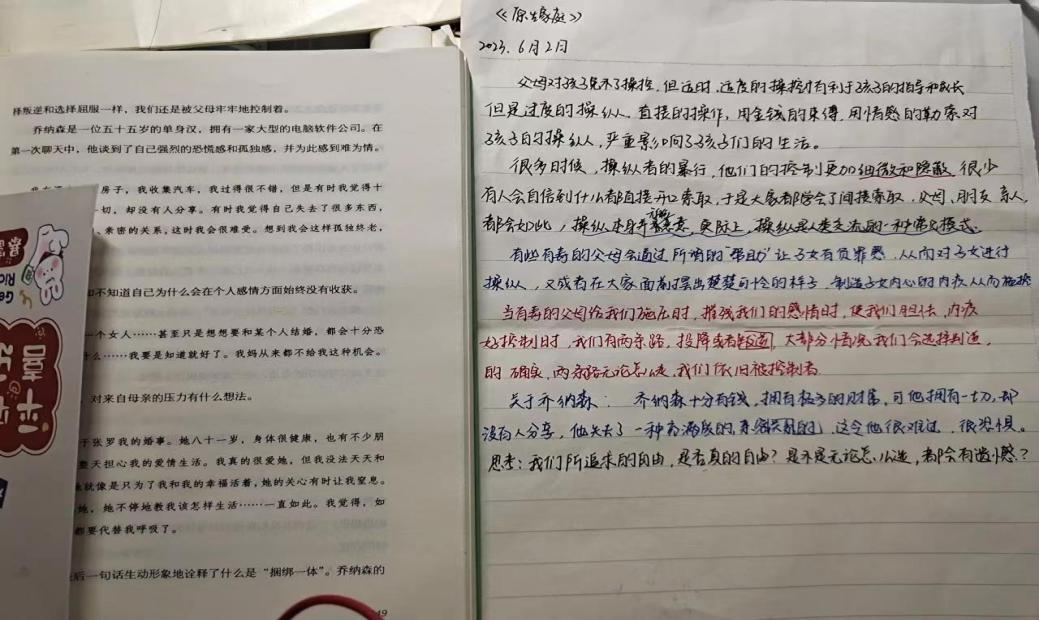 择叛逆和选择屈服一样，我们还是被父母牢牢地控制着。
乔纳森是一位五十五岁的单身汉，拥有一家大型的电脑软件公司。在
第一次聊天中，他谈到了自己强烈的恐慌感和孤独感，并为此感到难为情。
房子，我收集汽车，我过得很不错，但是有时我觉得十
一切，却没有人分享。有时我觉得自己失去了很多东西，
亲密的关系，这时我会很难受。想到我会这样孤独终老，
如不知道自己为什么会在个人感情方面始终没有收获。
一个女人……甚至只是想想要和某个人结婚，都会十分恐
什么……我要是知道就好了。我妈从来都不给我这种机会。
对来自母亲的压力有什么想法。
于张罗我的婚事。她八十一岁，身体很健康，也有不少朋
整天担心我的爱情生活。我真的很爱她，但我没法天天和
她就像是只为了我和我的幸福活着，她的关心有时让我窒息。
她，她不停地教我该怎样生活……一直如此。我觉得，如
都要代替我呼吸了。
后一句话生动形象地诠释了什么是“捆绑一体”。乔纳森的
49
《原生家庭》
2023.6月2日
父母对孩子免不了操控，但适时、适度的操控有利于孩子的指导和成长
但是过度的操纵人，直接的操作，用金钱的束缚，用情感的勒索对
孩子的操纵人，严重影响了孩子们的生活。
很多时候，操纵者的暴行，他们的控制更加细微和隐蔽，很少
有人会自信到什么都直接开口索取，于是大家都学会了间接索取，父母、朋友、亲人，
都会如此，操纵本身并 恶意，实际上，操纵是人类交流的一种常见模式。
有些有毒的父母会通过所谓的“帮助”让子女有负罪感，从而对子女进行
操纵，又或者在大家面前摆出楚楚可怜的样子，制造子女内心的内疚从而操控
当有毒的父母给我们施压时，掠夺我们的感情时，使我们胆怯、内疚
好控制时，我们有两条路，投降或者叛逆，大部分情况我们会选择叛逆，
的确实，两条路无论怎么走，我们依旧被控制着
关于乔纳森： 乔纳森十分有钱，拥有极多的财富，可他拥有一切，却
没有人分享，他失去了一种 的，这令他很难过，很恐惧。
思考：我们所追求的自由，是否真的自由？是不是无论怎么选，都会有遗憾？